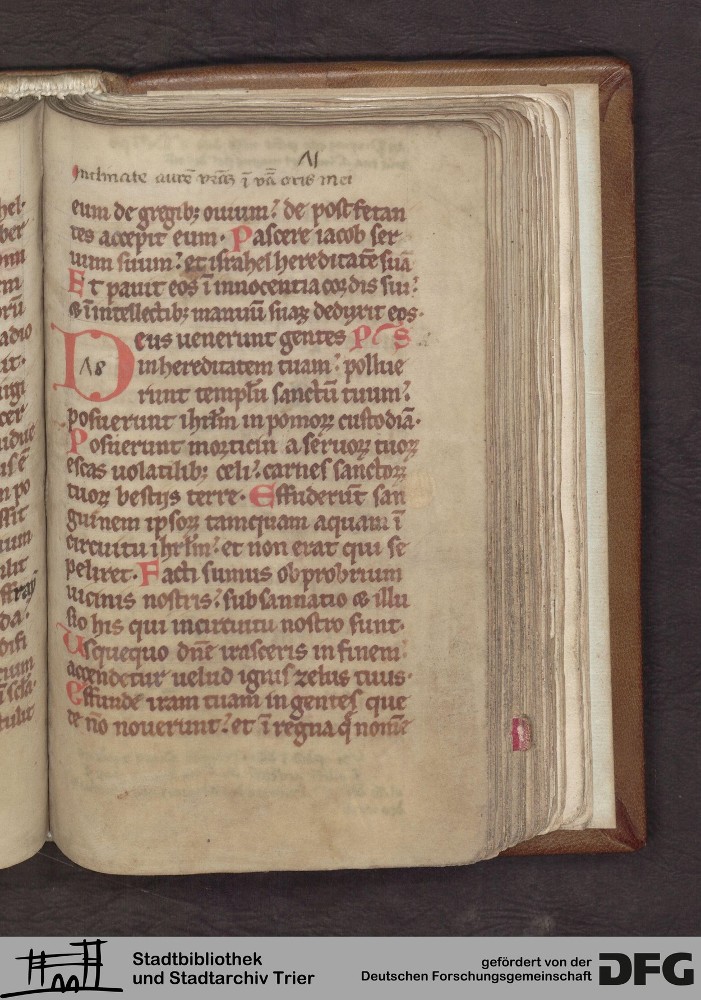 ΛI
Inclinate aurē vrāȝ ī v̄ba oris mei
eum de gregibꝫ ouium: de post fetan
tes accepit eum. Pascere iacob ser
uum suum: et israhel hereditatē suā
Et pauit eos ī innocentia cordis sui:
& ī intellectibꝫ manuū suaꝝ deduxit eos.
Deus uenerunt gentes PS
Λ8
in hereditatem tuam: pollue
runt templū sanctū tuum:
posuerunt ihrlm̄ in pomoꝝ custodiā.
Posuerunt morticin a seruoꝝ tuoꝝ
escas uolatilibꝫ celi: carnes sanctoꝝ
tuoꝝ bestiis terre. Effuderūt san
guinem ipsoꝝ tamquam aquam ī
circuitu ihrlm̄: et non erat qui se
peliret. Facti sumus obprobrium
uicinis nostris: subsannatio & illu
sio his qui incircuitu nostro sunt.
Usquequo dn̄e irasceris in finem:
accendetur uelud ignis zelus tuus.
Effunde iram tuam in gentes que
te nō nouerunt: et ī regna q̄ nomē
hel.
ber
rū
adio
it.
igi
cer
idue
n po
ffit
uum
ilit
da.
difi
cium
tulit
Stadtbibliothek
und Stadtarchiv Trier
gefördert von der
Deutschen Forschungsgemeinschaft
DFG